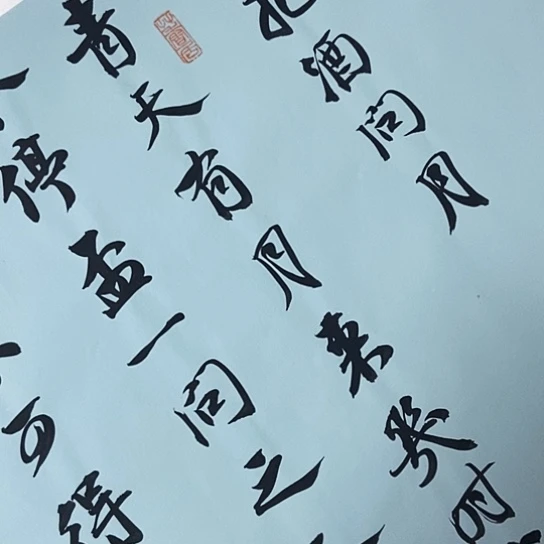 把酒问月
青天有月来幾时
停盃一问之
可得